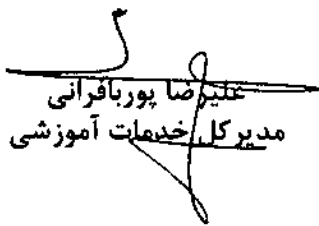 علیرضا پوربافرانی
مدیرکل خدمات آموزشی